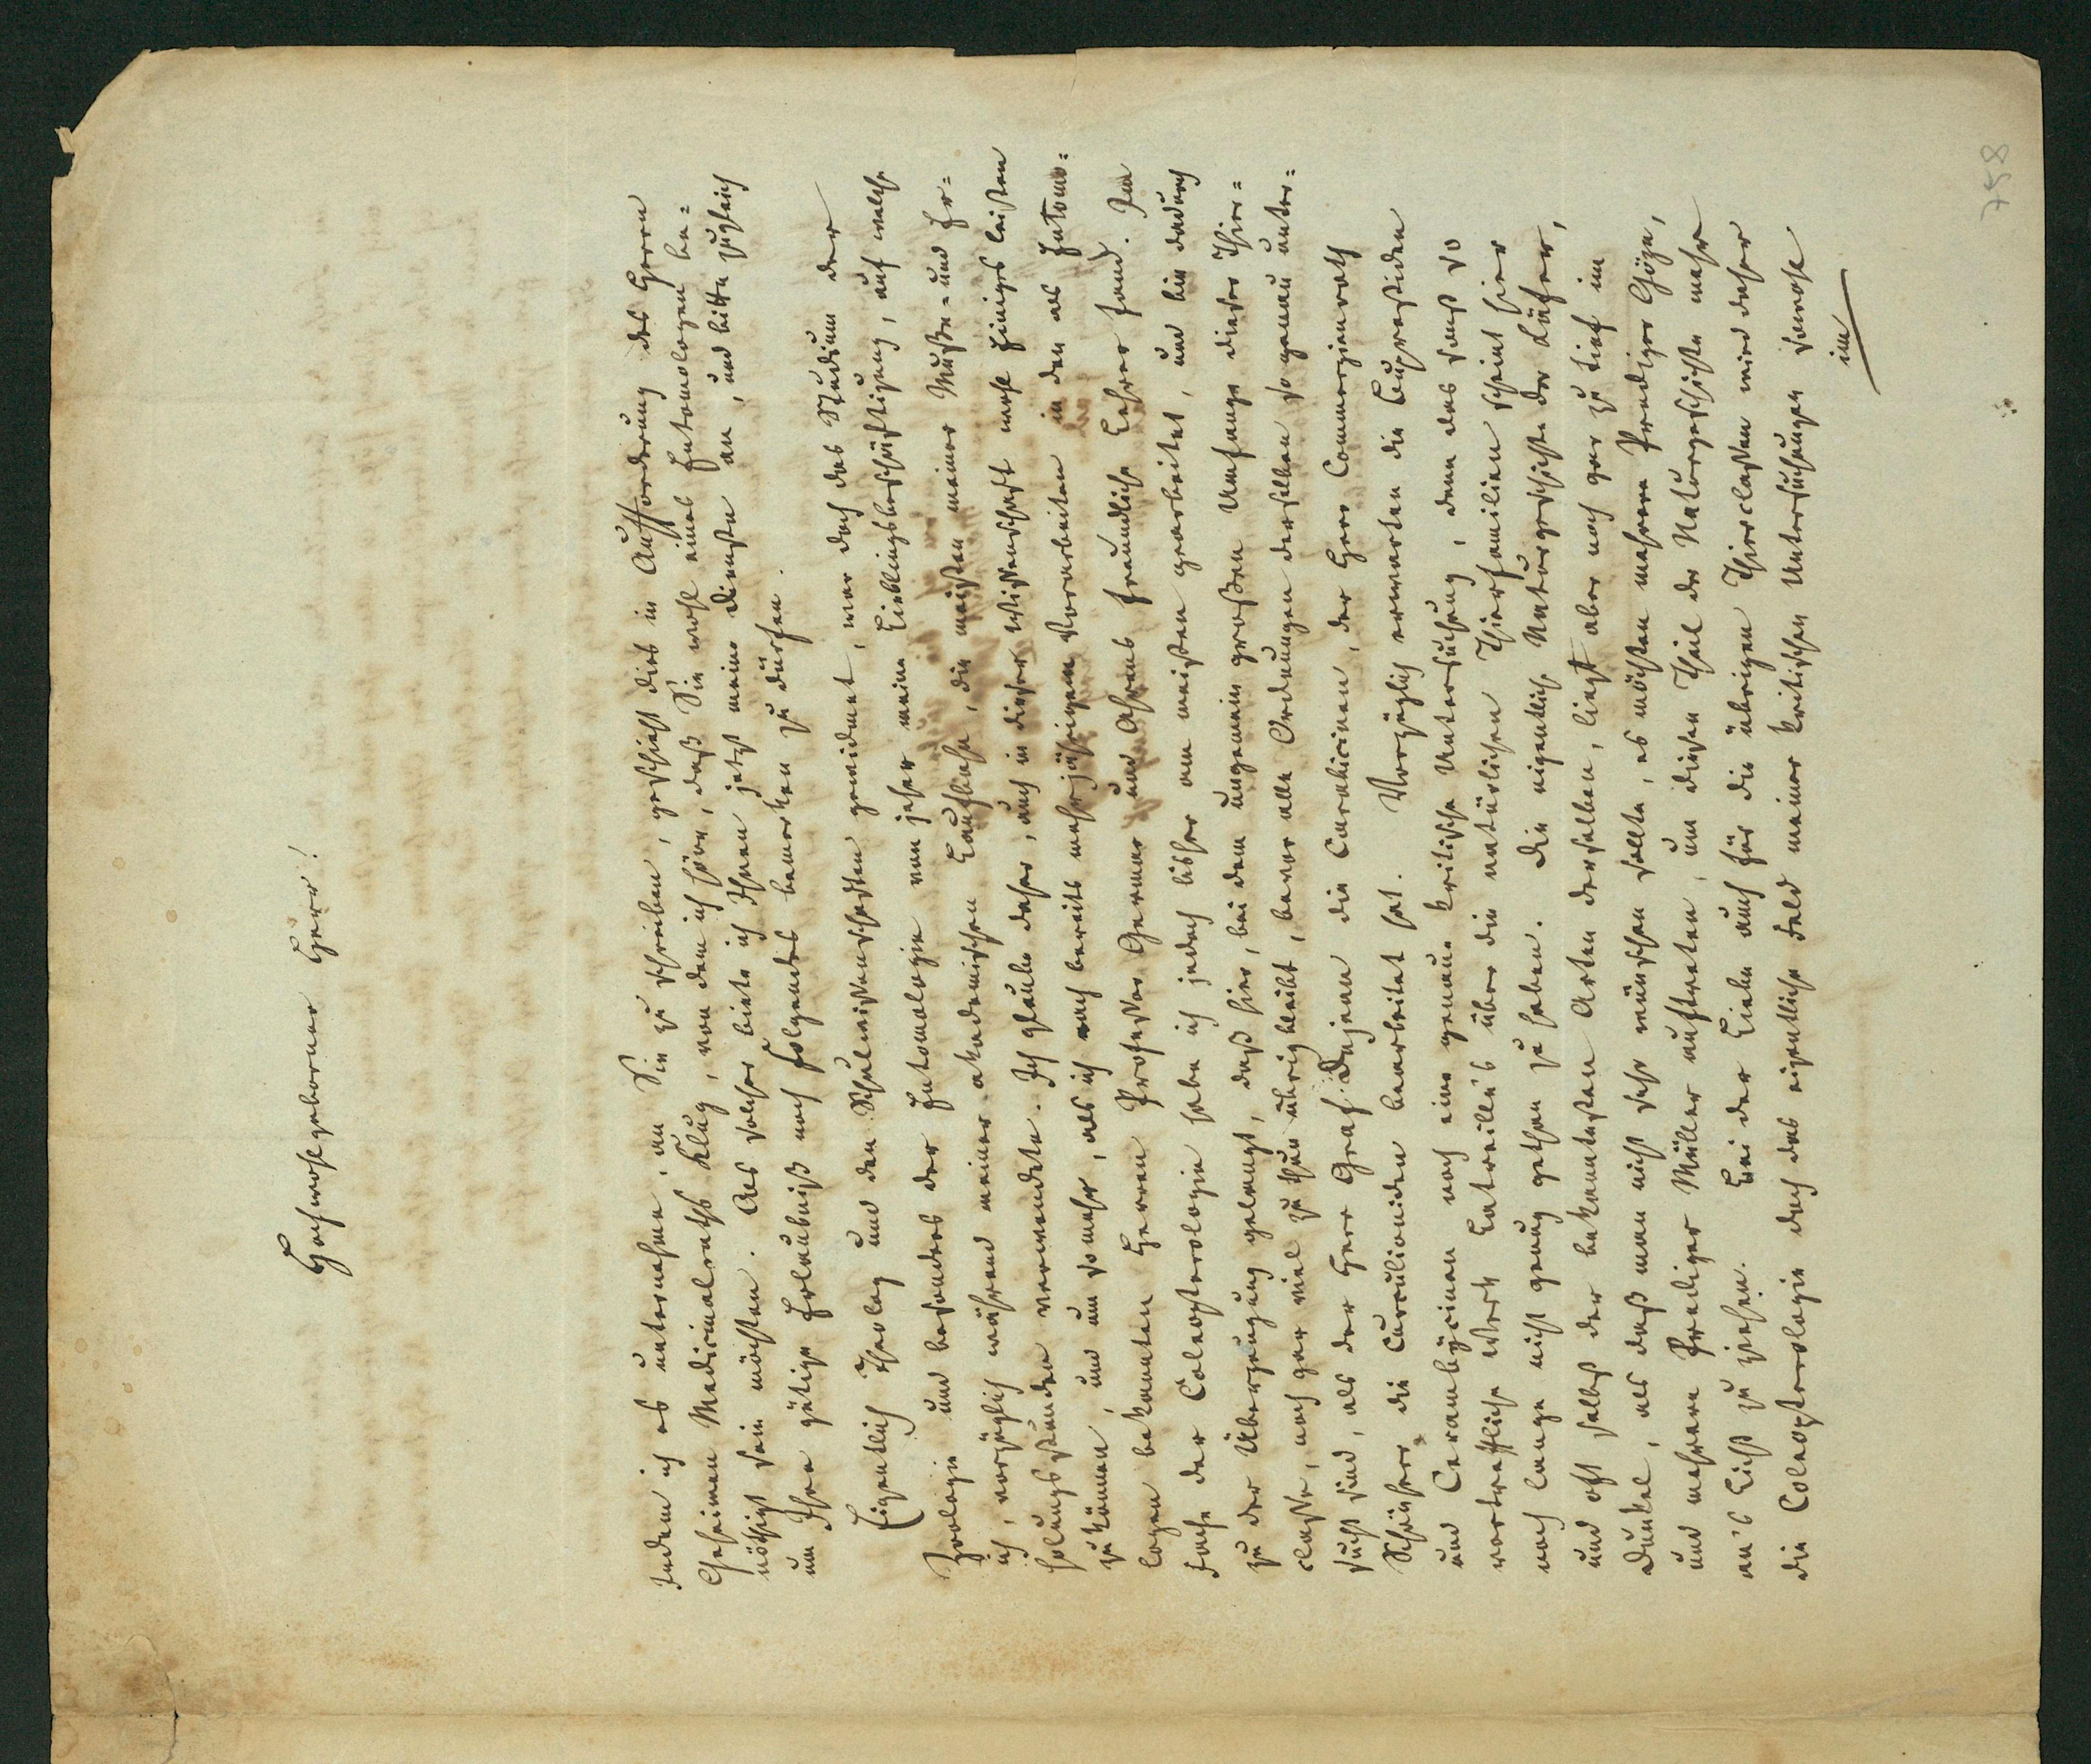 Hochwohlgeborner Herr!
Indem ich es unternehme, an Sie zu schreiben, geschieht dies in Aufforderung des Herrn
Geheimen Medicinalraths Klug, von dem ich höre, daß Sie wohl eines Entomologen be-
nöthigt sein möchten. Als solcher biete ich Ihnen jetzt meine Dienste an, und bitte zugleich
um Ihre gütige Erlaubniß noch Folgendes bemerken zu dürfen.
Eigentlich Theolog und den Schulwissenschaften gewidmet, war doch das Studium der
Zoologie und besonders der Entomologie von jeher meine Lieblingsbeschäftigung, auf welche
ich, vorzüglich während meiner akademischen Laufbahn, die meisten meiner Muße- und Er-
holungsstunden verwendete. Ich glaube daher, auch in dieser Wissenschaft wohl Einiges leisten
zu können, und um so mehr, als ich auch bereits mehrjährigen Vorarbeiten in den als Entomo-
logen bekannten Herren Professor Germar und Ahrens freundliche Lehrer fand. Im
Fache der Coleopterologie habe ich jedoch bisher am meisten gearbeitet, und bin dadurch
zu der Überzeugung gelangt, daß hier, bei dem ungemein großen Umfange dieser Thier-
classe, noch gar viel zu thun übrig bleibt, bevor alle Ordnungen derselben so genau unter-
sucht sind, als der Herr Graf Dejean die Carabicinen, der Herr Commerzienrath
Schönherr die Curculioniden bearbeitet hat. Vorzüglich erwarten die Buprestiden
und Cerambycinen noch eine genaue kritische Untersuchung, denn das sonst so
vortreffliche Werk Latreille's über die natürlichen Thierfamilien scheint hier
noch lange nicht genug gethan zu haben. Die eigentliche Naturgeschichte der Käfer,
und oft selbst der bekanntesten Arten derselben, liegt aber noch gar zu tief im
Dunkel, als daß man nicht sehr wünschen sollte, es möchten mehrere Prediger Göze,
und mehrere Prediger Müller auftreten, um diesen Theil der Naturgeschichte mehr
an's Licht zu ziehen. Bei der Liebe auch für die übrigen Thierclassen wird daher
die Coleopterologie doch das eigentliche Feld meiner kritischen Untersuchungen sowohl
im
758